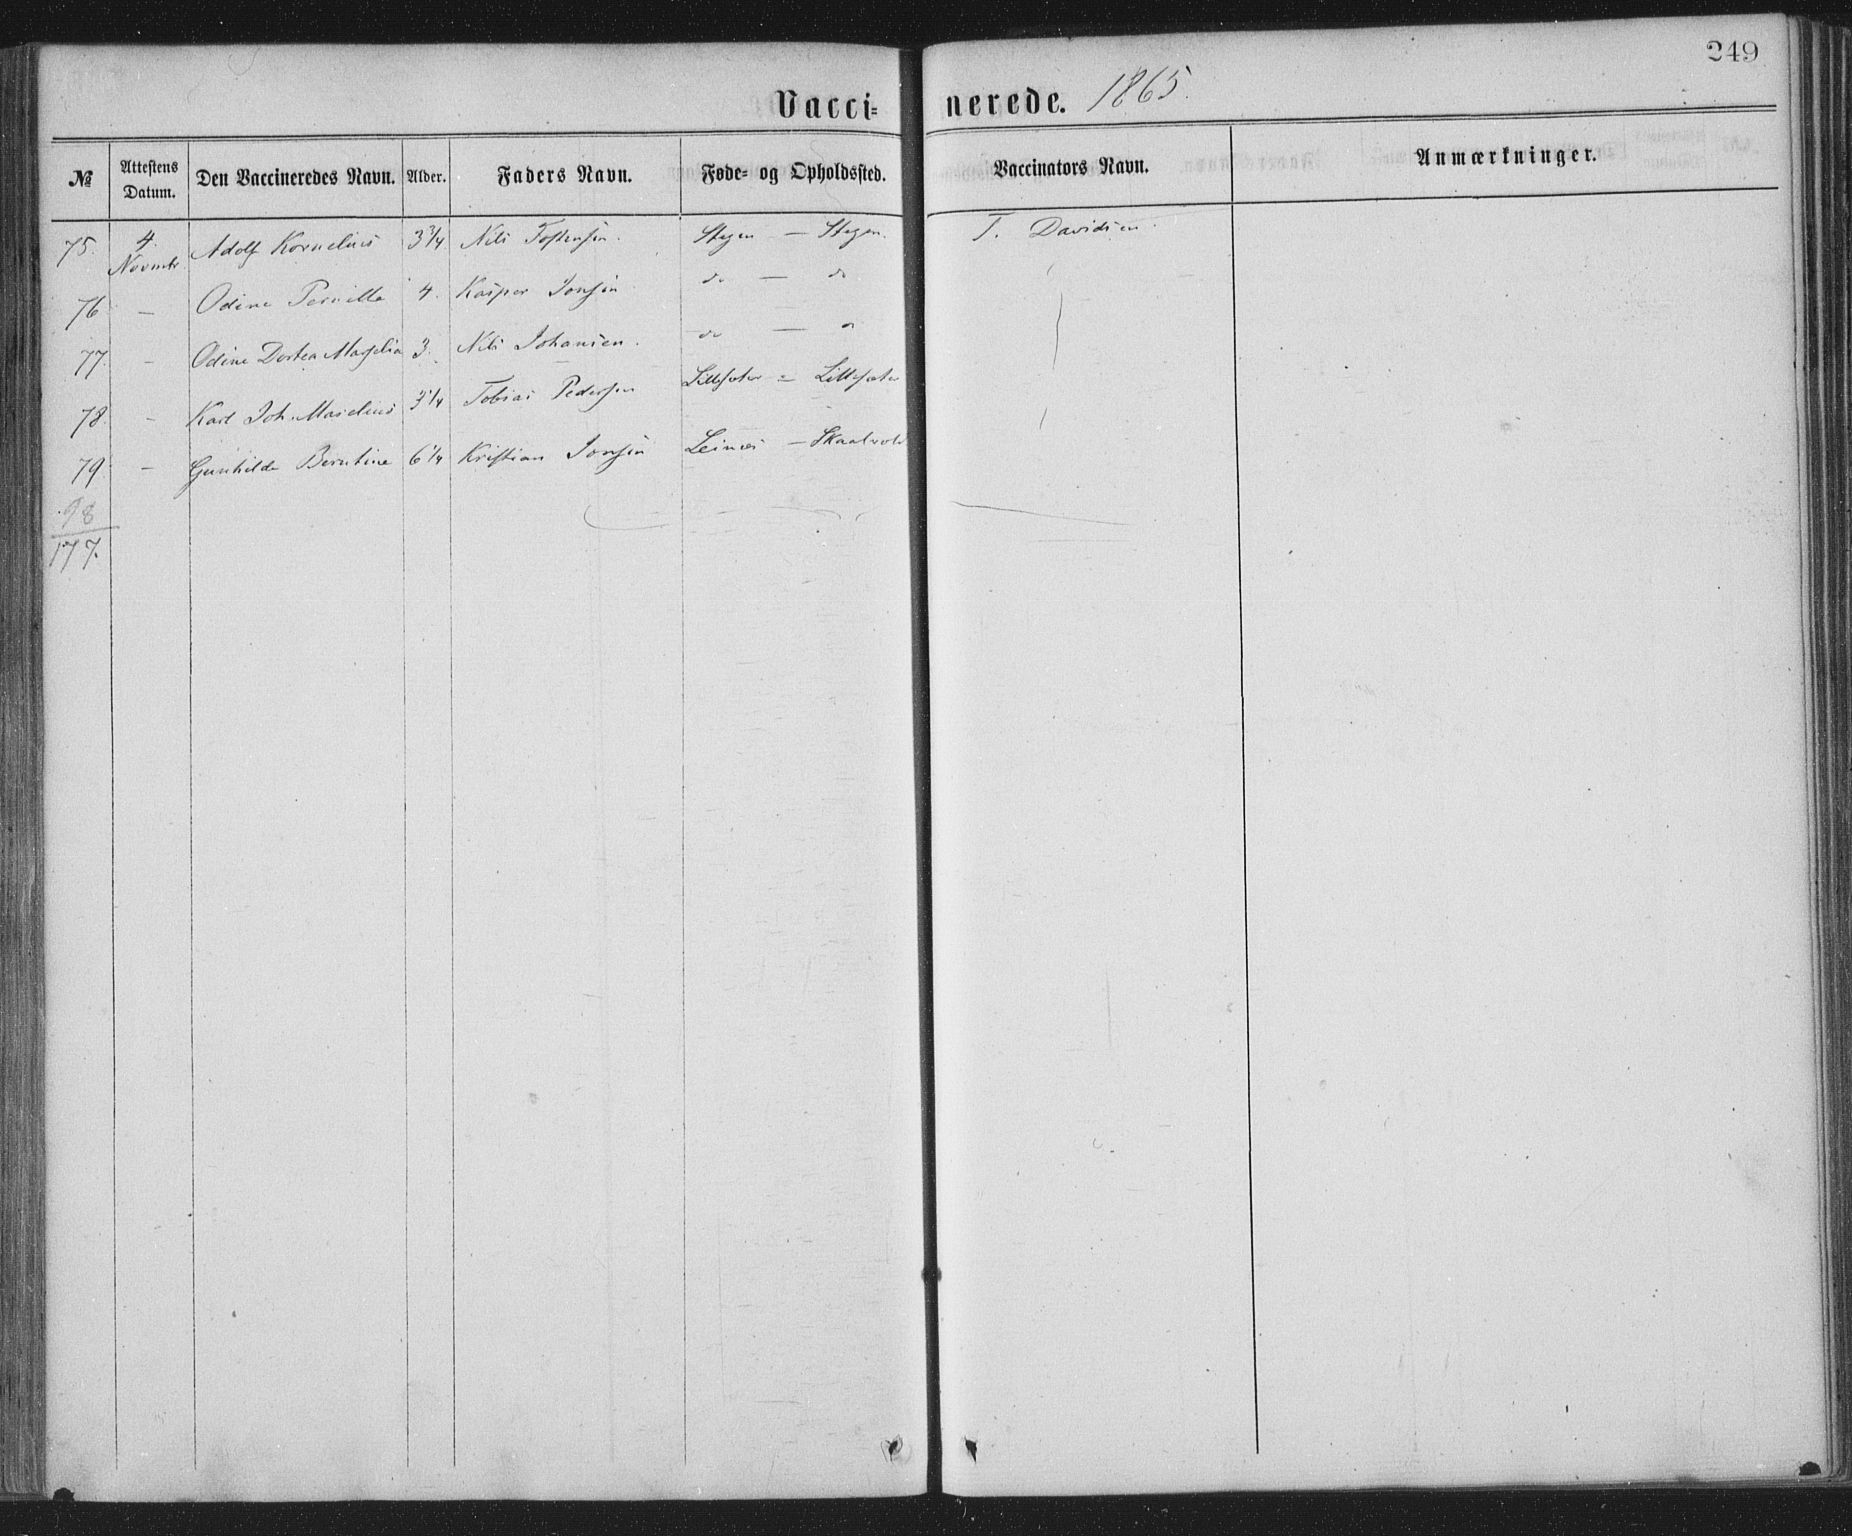 249
Vacci= nerede. 1865.
№ Attestens Datum. Den Vaccineredes Navn. Alder. Faders Navn. Føde- og Opholdssted. Vaccinators Navn. Anmærkninger.
75. 4. Novmbr Adolf Kornelius 3 3/4 Nils Tostensen. Stegen — Stegen. T. Davidsen.
76 — Odine Pernille 4. Kasper Jonsen do — do
77. — Odine Dortea 3. Nils Johansen. do — do
78. — Karl Joh. Marelius 3 1/4 Tobias Pedersen Lillesæter = Lillesæter
79. — Gunhilde Berntine 6 1/4 Kristian Jonsen Leines — Skaalvold
98
177.